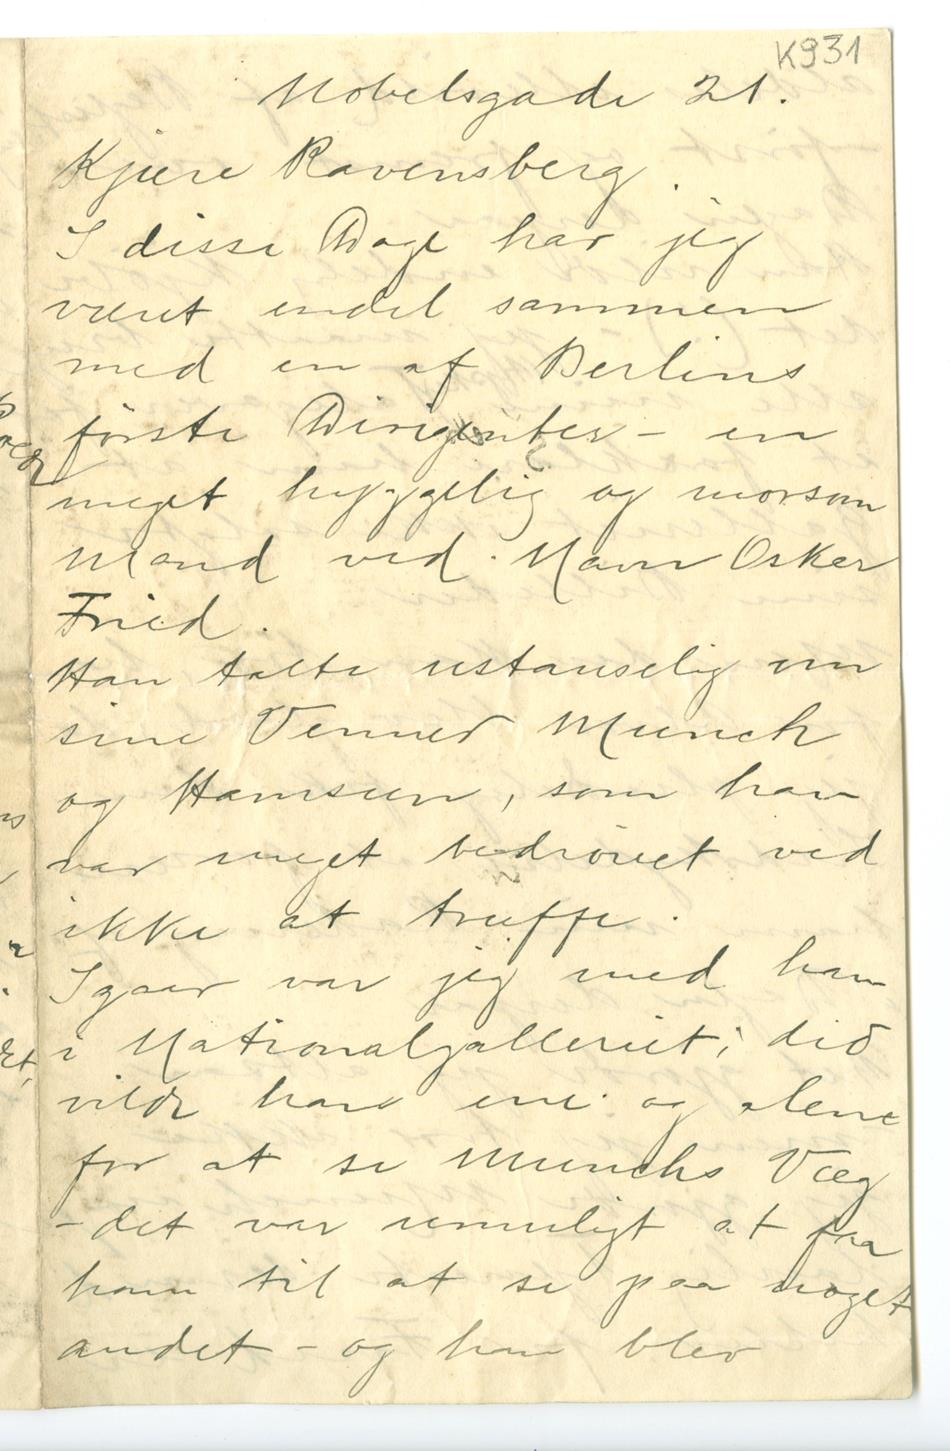 K931
Nobelsgade 21.
Kjære Ravensberg.
I disse Dage har jeg
været endel sammen
med en af Berlins
første Dirigenter – en
meget hyggelig og morsom
Mand ved Navn Oskar
Fried.
Han talte ustanselig om
sine Venner Munch
og Hamsun, som han
var meget bedrøvet ved
ikke at træffe.
Igaar var jeg med ham
i Nationalgalleriet; did
vilde han ene og alene
for at se Munchs Væg
– det var umuligt at faa
ham til at se paa noget
andet – og han blev